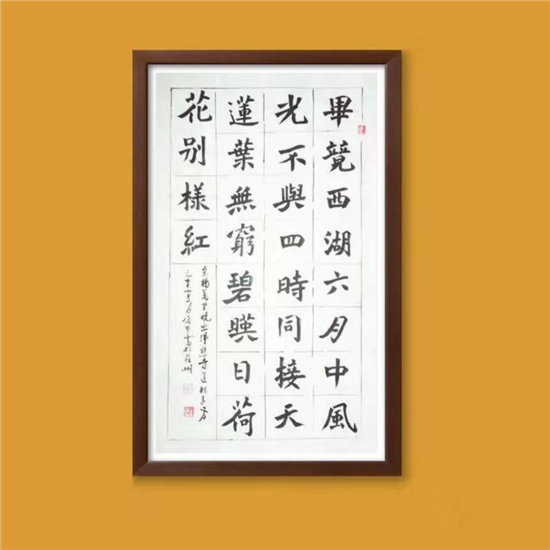 畢竟西湖六月中風
光不與四時同接天
蓮葉無窮碧暎日荷
花别樣紅
宋楊萬里曉出淨慈寺送林子方
己亥